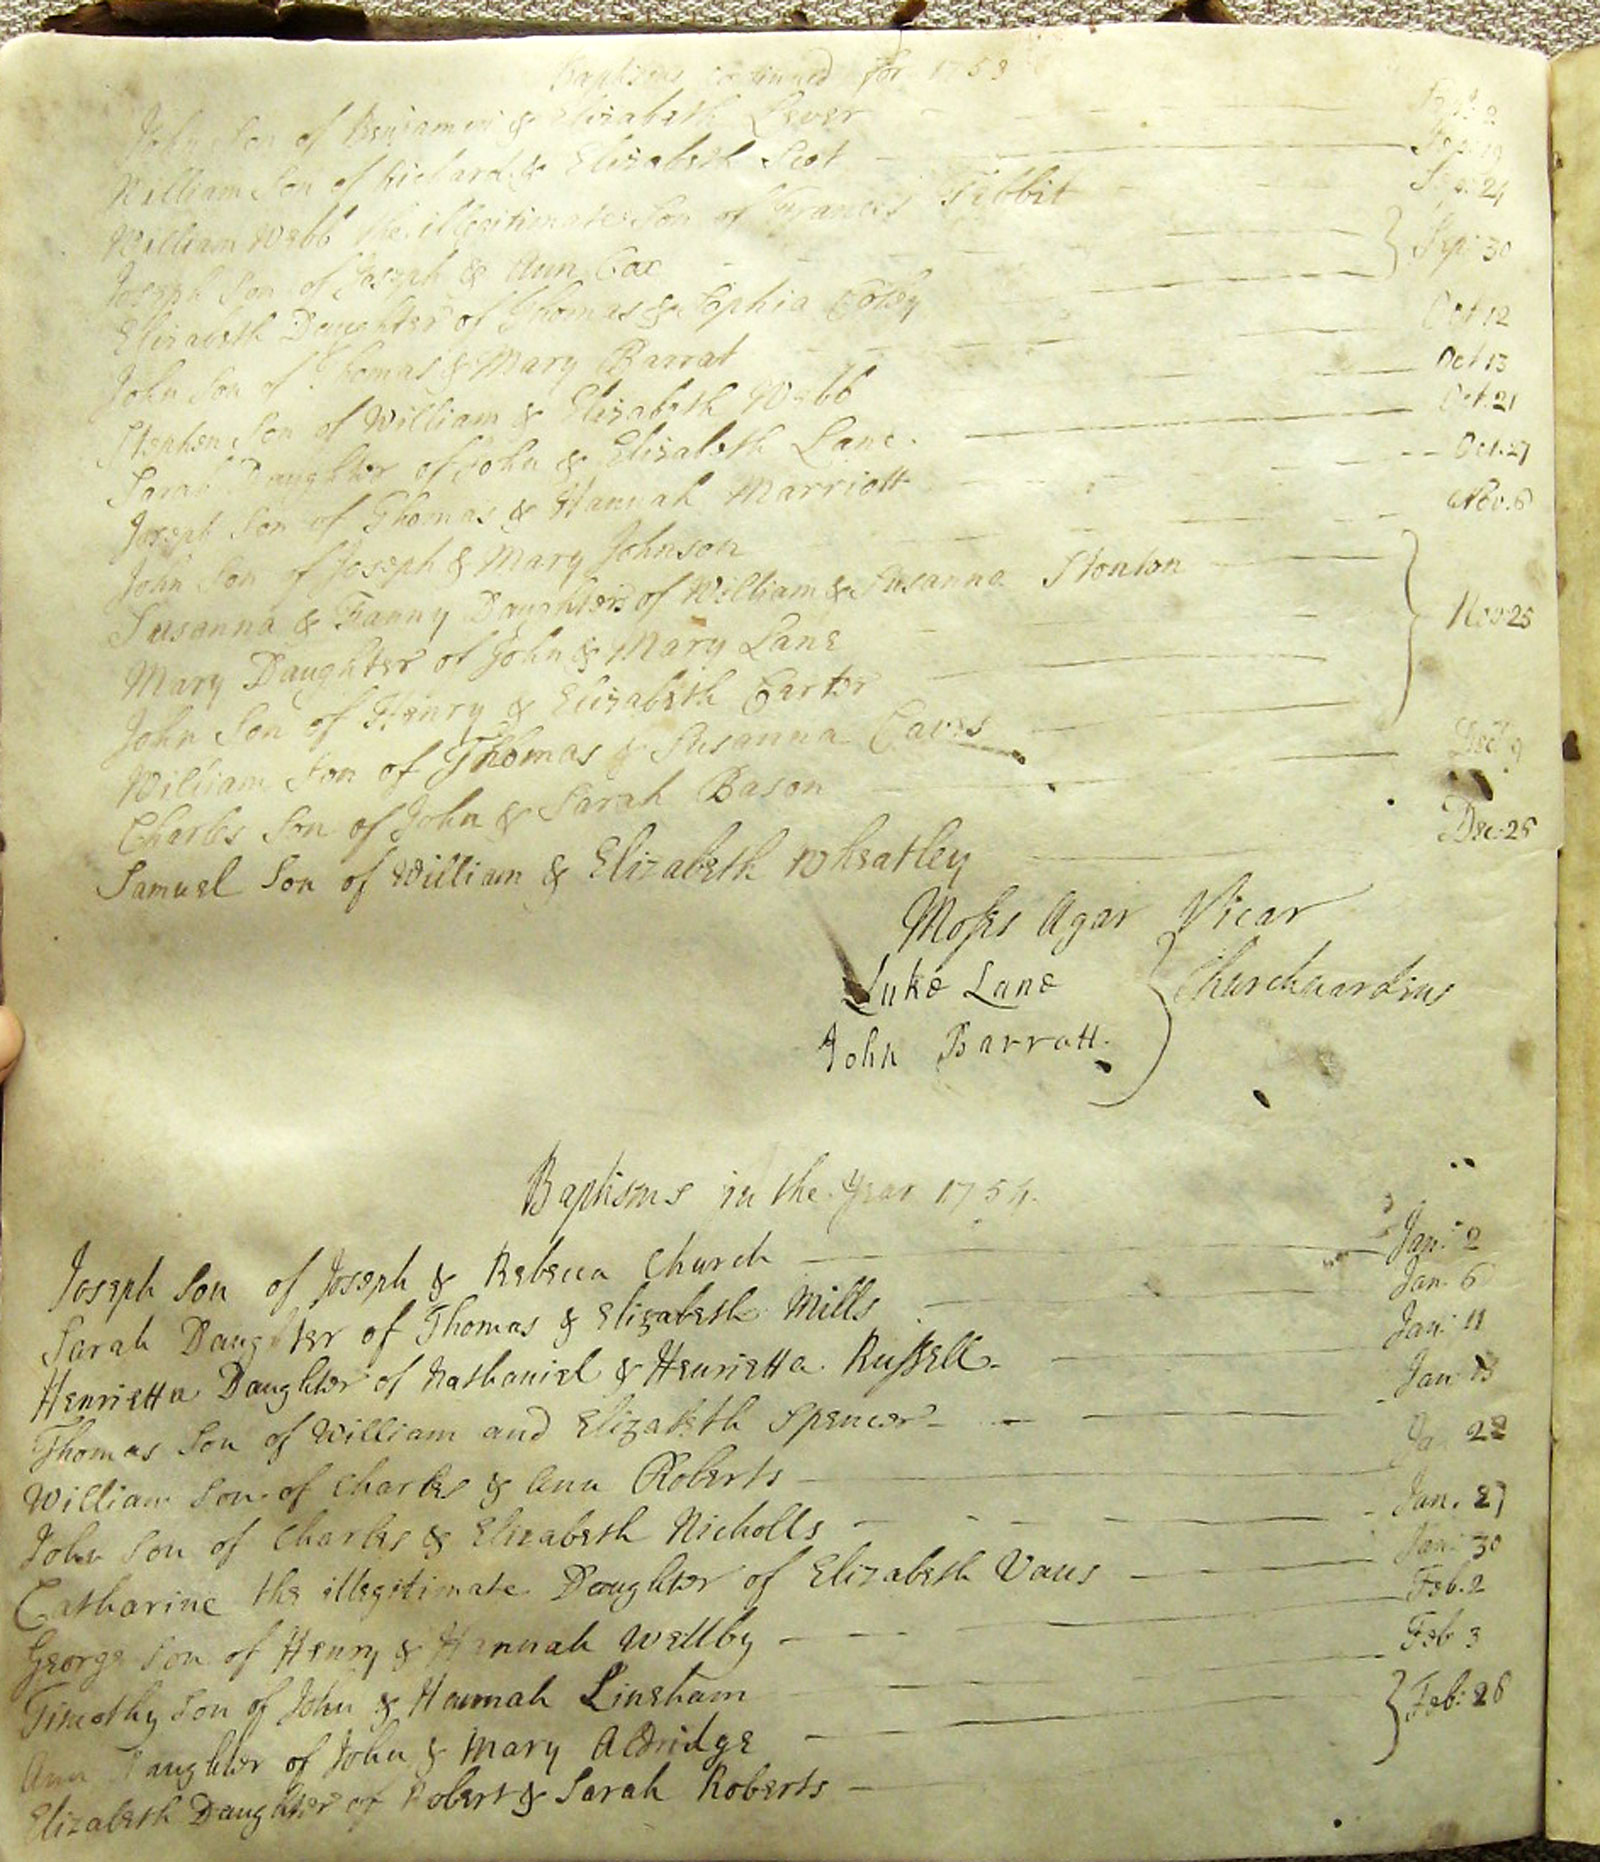 Baptisms continued for 1753
John Son of Benjamin & Elizabeth Lever Sep: 2
William Son of Richard & Elizabeth Scot Sep: 19
William Webb the illegitimate Son of Frances Tibbit Sep: 24
Joseph Son of Joseph & Ann Cox
Elizabeth Daughter of Thomas & Sophia Sep: 30
John Son of Thomas & Mary Barrat Oct 12
Stephen Son of William & Elizabeth Webb Oct 13
Sarah Daughter of John & Elizabeth Lane. Oct. 21
Joseph Son of Thomas & Hannah Marriott Oct. 27
John Son of Joseph & Mary Johnson Nov. 6
Susanna & Fanny Daughters of William & Susanna Stonton
Mary Daughter of John & Mary Lane Nov: 25
John Son of Henry & Elizabeth Carter
William Son of Thomas & Susanna Caves
Charles Son of John & Sarah Bason Dec: 9
Samuel Son of William & Elizabeth Wheatley Dec: 26
Moses Agar Vicar
Luke Lane
John Barratt. Churchwardens
Baptisms in the Year 1754.
Joseph Son of Joseph & Rebecca Church Jan: 2
Sarah Daughter of Thomas & Elizabeth Mills Jan. 6
Henrietta Daughter of Nathaniel & Henrietta Russell Jan: 11
Thomas Son of William and Elizabeth Spencer Jan: 13
William Son of Charles & Ann Roberts Jan 22
John Son of Charles & Elizabeth Nicholls Jan. 27
Catharine the illegitimate Daughter of Elizabeth Vaus Jan: 30
George Son of Henry & Hannah Wellby Feb. 2
Timothy Son of John & Hannah Linsham Feb 3
Ann Daughter of John & Mary Aldridge Feb: 26
Elizabeth Daughter of Robert & Sarah Roberts